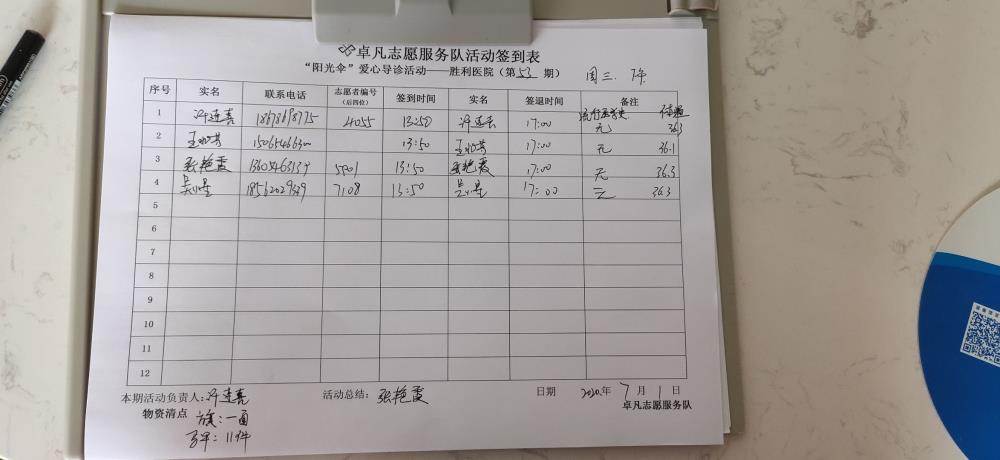 卓凡志愿服务队活动签到表
“阳光伞”爱心导诊活动——胜利医院（第53期） 周三. 下午
序号 实名 联系电话 志愿者编号（后四位） 签到时间 实名 签退时间 备注
流行病学史 体温
1 许连喜 18678698775 4055 13:50 许连喜 17:00 无 36.3
2 13:50 17:00 无 36.1
3 张艳霞 5201 13:50 张艳霞 17:00 无 36.3
4 吴星 7108 13:50 吴星 17:00 无 36.3
5
6
7
8
9
10
11
12
本期活动负责人:许连喜 活动总结: 张艳霞 日期 2020年 7 月 1 日
物资清点 旗:一面 卓凡志愿服务队
马甲: 11件